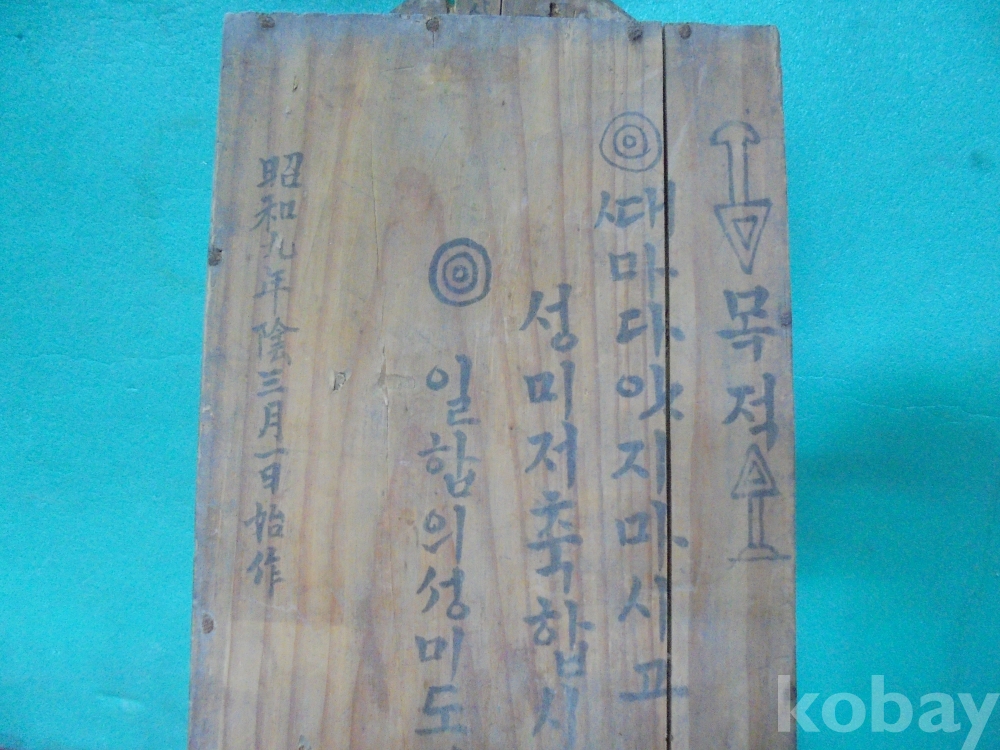 목적
ᄯᅢ마다잇지마시고
성미저축합시
일합의성미도
昭和九年陰三月一日始作
kobay